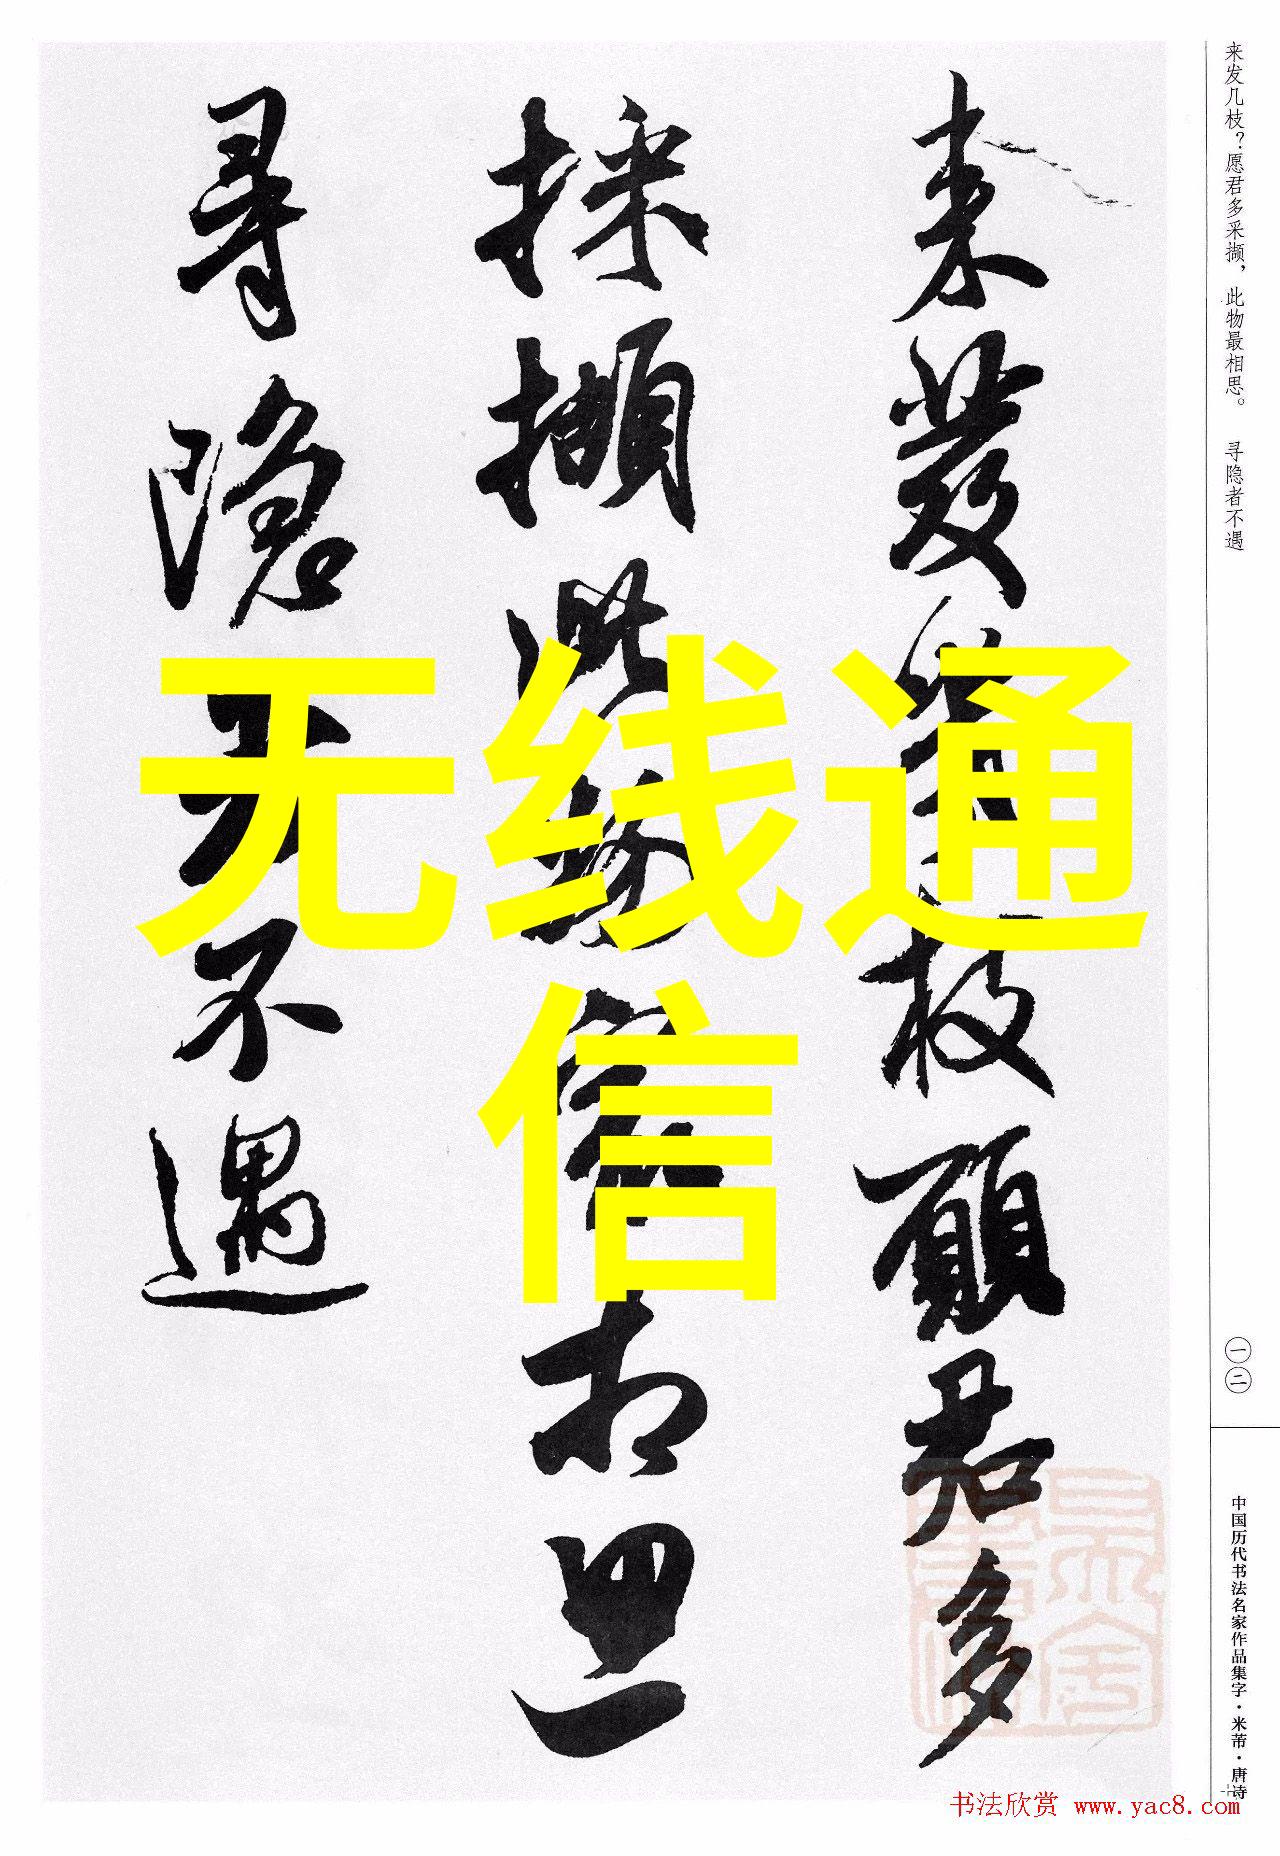 来发几枝？愿君多采撷，此物最相思。 寻隐者不遇
來發幾枝願君多
採擷此物最相思
尋隱者不遇
无线通
信
一二
中国历代书法名家作品集字·米芾·唐诗
书法欣赏 www.yac8.com